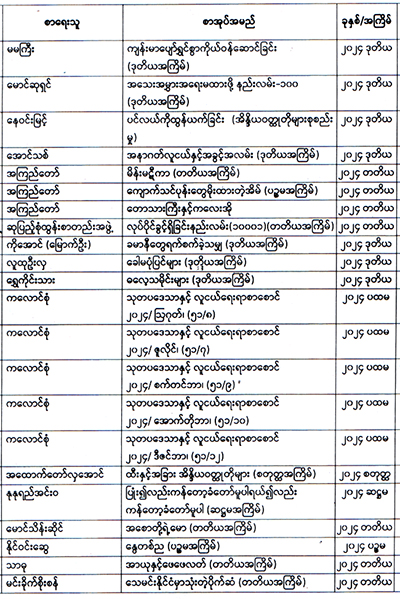 စာရေးသူ စာအုပ်အမည် ခုနှစ်/အကြိမ်
မမကြီး ကျန်းမာပျော်ရွှင်စွာကိုယ်ဝန်ဆောင်ခြင်း ၂၀၂၄ ဒုတိယ
(ဒုတိယအကြိမ်)
မောင်ဆုရှင် အသေးအမွှားအရေးမထားဖို့ နည်းလမ်း-၁၀၀ ၂၀၂၄ ဒုတိယ
(ဒုတိယအကြိမ်)
နေဝင်းမြင့် ပင်လယ်ကိုထွန်ယက်ခြင်း (အိန္ဒိယဝတ္ထုတိုများစုစည်း ၂၀၂၄ ဒုတိယ
မှု)
အောင်သစ် အနာဂတ်လူငယ်နှင့်အခွင့်အလမ်း (ဒုတိယအကြိမ်) ၂၀၂၄ ဒုတိယ
အကြည်တော် မိန်းမဋီကာ (တတိယအကြိမ်) ၂၀၂၄ တတိယ
အကြည်တော် ကျောက်သင်ပုန်းတွေမိုးထားတဲ့အိမ် (ပဉ္စမအကြိမ်) ၂၀၂၄ တတိယ
အကြည်တော် တေသားကြီးနှင့်ကလေးအို ၂၀၂၄ တတိယ
ဆုပြည့်စုံထွန်းစာတည်းအဖွဲ့ လုပ်ပိုင်ခွင့်ရှိခြင်းနည်းလမ်း(၁၀၀၀၁)(တတိယအကြိမ်) ၂၀၂၄ တတိယ
ကိုအောင် (မြောက်ဦး) ခမာနီတွေရက်စက်ခဲ့သမျှ (ဒုတိယအကြိမ်) ၂၀၂၄ ဒုတိယ
လူထုဦးလှ ခေါမပုံပြင်များ (ဒုတိယအကြိမ်) ၂၀၂၄ ဒုတိယ
ရွှေကိုင်းသား ဓလေ့သမိုင်းများ (ဒုတိယအကြိမ်) ၂၀၂၄ ဒုတိယ
ကလောင်စုံ သုတပဒေသာနှင့် လူငယ်ရေးရာစာစောင် ၂၀၂၄ ပထမ
၂၀၂၄/ ဩဂုတ်၊ (၅၁/၈)
ကလောင်စုံ သုတပဒေသာနှင့် လူငယ်ရေးရာစာစောင် ၂၀၂၄ ပထမ
၂၀၂၄/ ဇူလိုင်၊ (၅၁/၇)
ကလောင်စုံ သုတပဒေသာနှင့် လူငယ်ရေးရာစာစောင် ၂၀၂၄ ပထမ
၂၀၂၄/ စက်တင်ဘာ၊ (၅၁/၉)
ကလောင်စုံ သုတပဒေသာနှင့် လူငယ်ရေးရာစာစောင် ၂၀၂၄ ပထမ
၂၀၂၄/ အောက်တိုဘာ၊ (၅၁/၁၀)
ကလောင်စုံ သုတပဒေသာနှင့် လူငယ်ရေးရာစာစောင် ၂၀၂၄ ပထမ
၂၀၂၄/ ဒီဇင်ဘာ၊ (၅၁/၁၂)
အထောက်တော်လှအောင် ထီးနှင့်အခြား အိန္ဒိယဝတ္ထုတိုများ (စတုတ္ထအကြိမ်) ၂၀၂၄ စတုတ္ထ
နုနုရည်အင်းဝ ပြုံး၍လည်းကန်တော့ခံတော်မူပါရယ်၍လည်း ၂၀၂၄ ဆဋ္ဌမ
ကန်တော့ခံတော်မူပါ (ဆဋ္ဌမအကြိမ်)
မောင်သိန်းဆိုင် အစောတို့ရဲ့မော (တတိယအကြိမ်) ၂၀၂၄ တတိယ
နိုင်ဝင်းဆွေ နွေတစ်ည (ပဉ္စမအကြိမ်) ၂၀၂၄ ပဉ္စမ
သာဓု အာယုနှင့်ဖေဖေလတ် (တတိယအကြိမ်) ၂၀၂၄ တတိယ
မင်းခိုက်စိုးစန် သေမင်းနိုင်ငံမှာသုံးတဲ့ပိုက်ဆံ (တတိယအကြိမ်) ၂၀၂၄ တတိယ